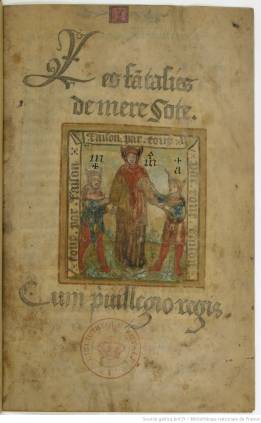 Les fãtasies
de mere Sote.
Raison. par. tout
par. tout. Raison
tout. par. Raison
m
m
a
Cum priuillegio regis.
Source gallica.bnf.fr / Bibliothèque nationale de France